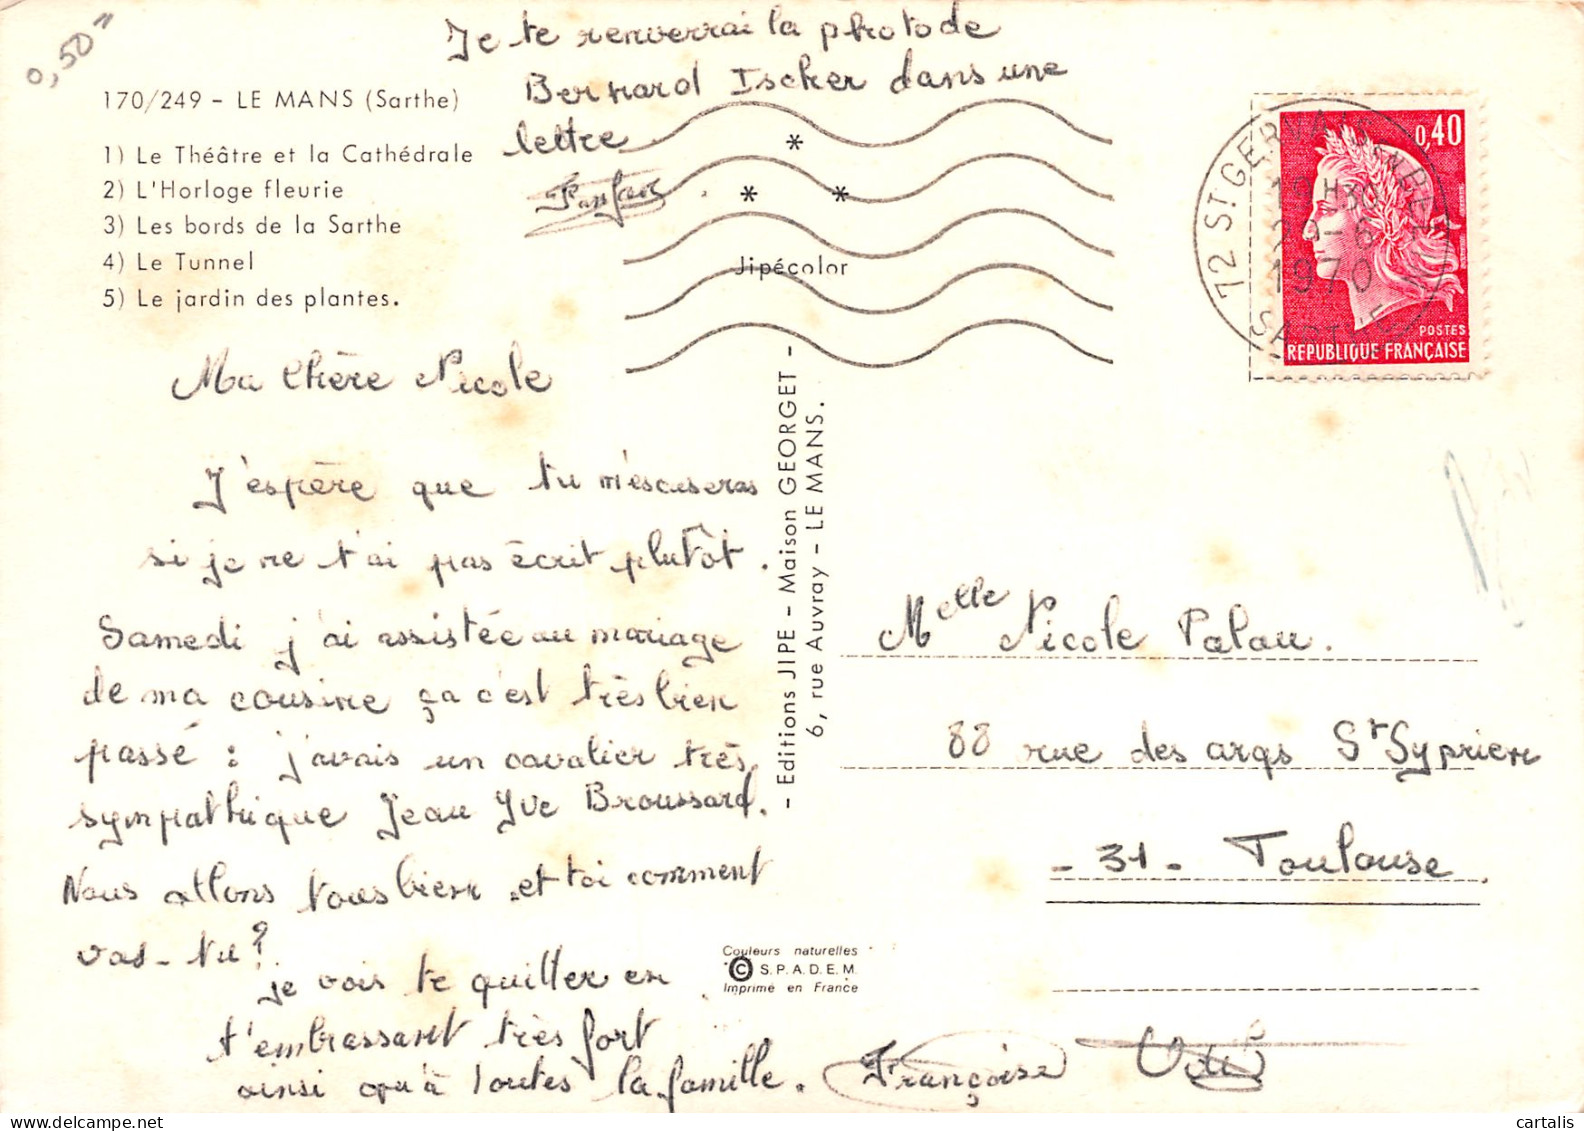 0,50
Je te renverrai la photo de
Bernard Ischer dans une
lettre
170/249 - LE MANS (Sarthe)
1) Le Théâtre et la Cathédrale
2) L'Horloge fleurie
3) Les bords de la Sarthe
4) Le Tunnel
5) Le jardin des plantes.
Jipécolor
72 ST GERVAIS EN BELIN
19 H30
-6
1970
SARTHE
0,40
POSTES
REPUBLIQUE FRANÇAISE
Ma chère Nicole
J'espère que tu m'escuseras
si je ne t'ai pas écrit plutôt.
Samedi j'ai assistée au mariage
de ma cousine ça c'est très bien
passé : j'avais un cavalier très
sympathique Jean Yve Broussard.
Nous allons tous bien et toi comment
vas-tu?
je vais te quitter en
t'embrassant très fort
ainsi qu'à toutes la famille. Françoise
- Editions JIPE - Maison GEORGET -
6, rue Auvray - LE MANS.
Couleurs naturelles
© S.P.A.D.E.M.
Imprimé en France
Melle Nicole Palau.
88 rue des arqs St Syprien
- 31 - Toulouse.
cartalis